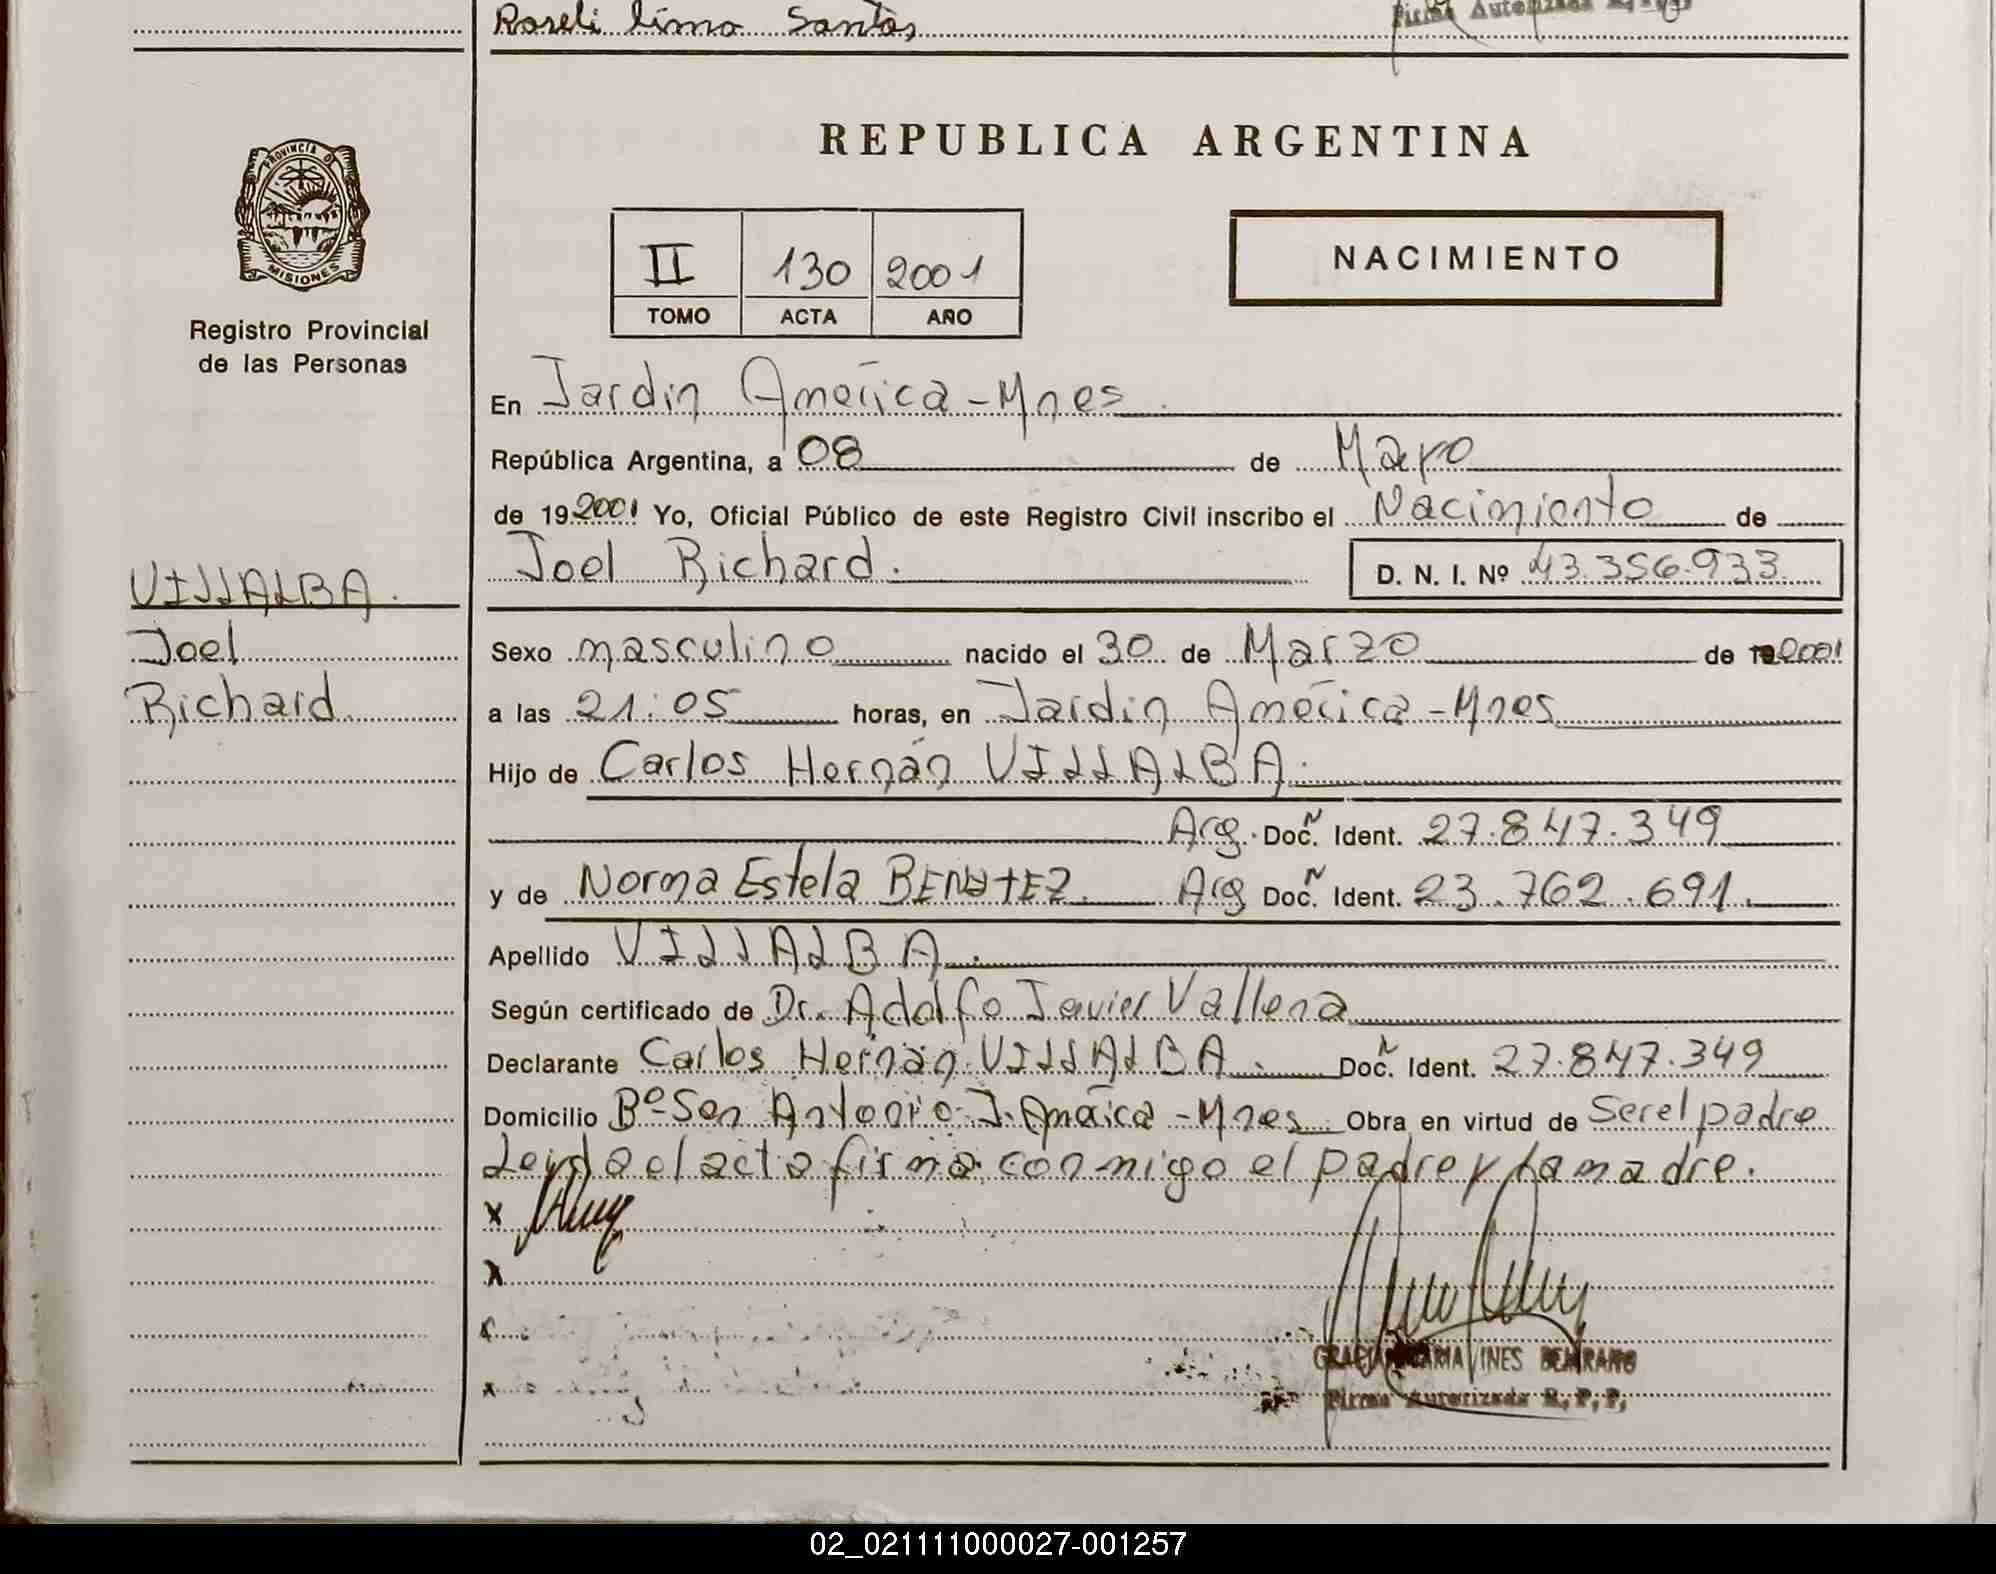 Roseli lima Santos
Firma Autorizada R.P.P.
PROVINCIA D
MISIONES
Registro Provincial
de las Personas
REPUBLICA ARGENTINA
II 130 2001
TOMO ACTA AÑO
NACIMIENTO
En Jardin América-Mnes
República Argentina, a 08 de Mayo
de 19 2001 Yo, Oficial Público de este Registro Civil inscribo el Nacimiento de
Joel Richard. D. N. I. Nº 43.356.933
VILLALBA.
Joel
Richard
Sexo masculino nacido el 30 de Marzo de 2001
a las 21:05 horas, en Jardin América-Mnes
Hijo de Carlos Hernán VILLALBA.
Arg. Doc. Ident. 27.847.349
y de Norma Estela BENITEZ. Arg Doc. Ident. 23.762.691.
Apellido VILLALBA.
Según certificado de Dr. Adolfo Javier Vallena
Declarante Carlos Hernán VILLALBA. Doc. Ident. 27.847.349
Domicilio Bº San Antonio-J. América-Mnes Obra en virtud de Ser el padre
Leida el acta firma conmigo el padre y la madre.
x
x
x
x
MARIA INES
Firma Autorizada R.P.P.
02_021111000027-001257